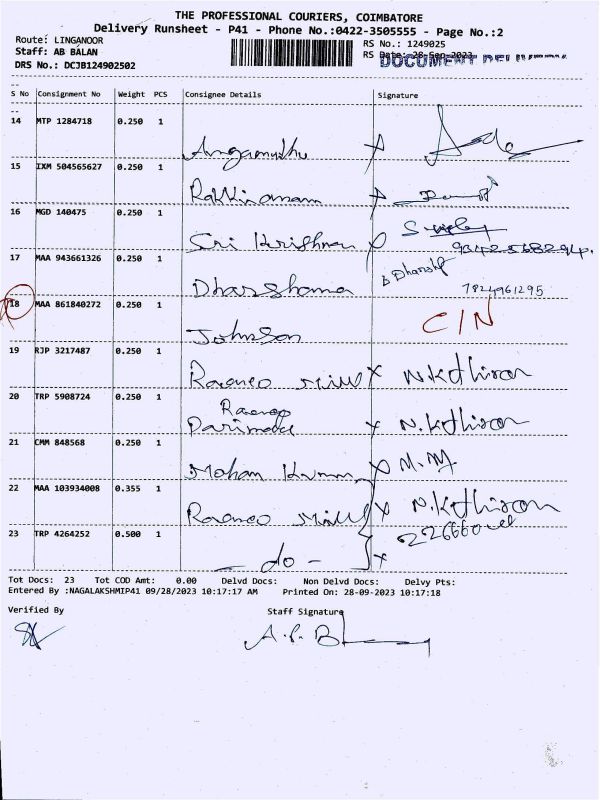 THE PROFESSIONAL COURIERS, COIMBATORE
Delivery Runsheet - P41 - Phone No.:0422-3505555 - Page No.:2
Route: LINGANOOR
RS No.: 1249025
Staff: AB BALAN
RS Date: 28-Sep-2023
DOCUMENT
DRS No.: DCJB124902502
S No Consignment No Weight PCS Consignee Details Signature
14 MTP 1284718 0.250 1
Angamuthu x
15 IXM 504565627 0.250 1
Rakkinanam x
16 MGD 140475 0.250 1
Sri Krishnan
17 MAA 943661326 0.250 1
Dharshana
7824961295
18 MAA 861840272 0.250 1
Johnson C/N
19 RJP 3217487 0.250 1
x N.Kathiran
20 TRP 5908724 0.250 1
x N.Kathiran
21 CMM 848568 0.250 1
Mohan M.M
22 MAA 103934008 0.355 1
x N.Kathiran
23 TRP 4264252 0.500 1
- do - x
Tot Docs: 23 Tot COD Amt: 0.00 Delvd Docs: Non Delvd Docs: Delvy Pts:
Entered By :NAGALAKSHMIP41 09/28/2023 10:17:17 AM Printed On: 28-09-2023 10:17:18
Verified By Staff Signature